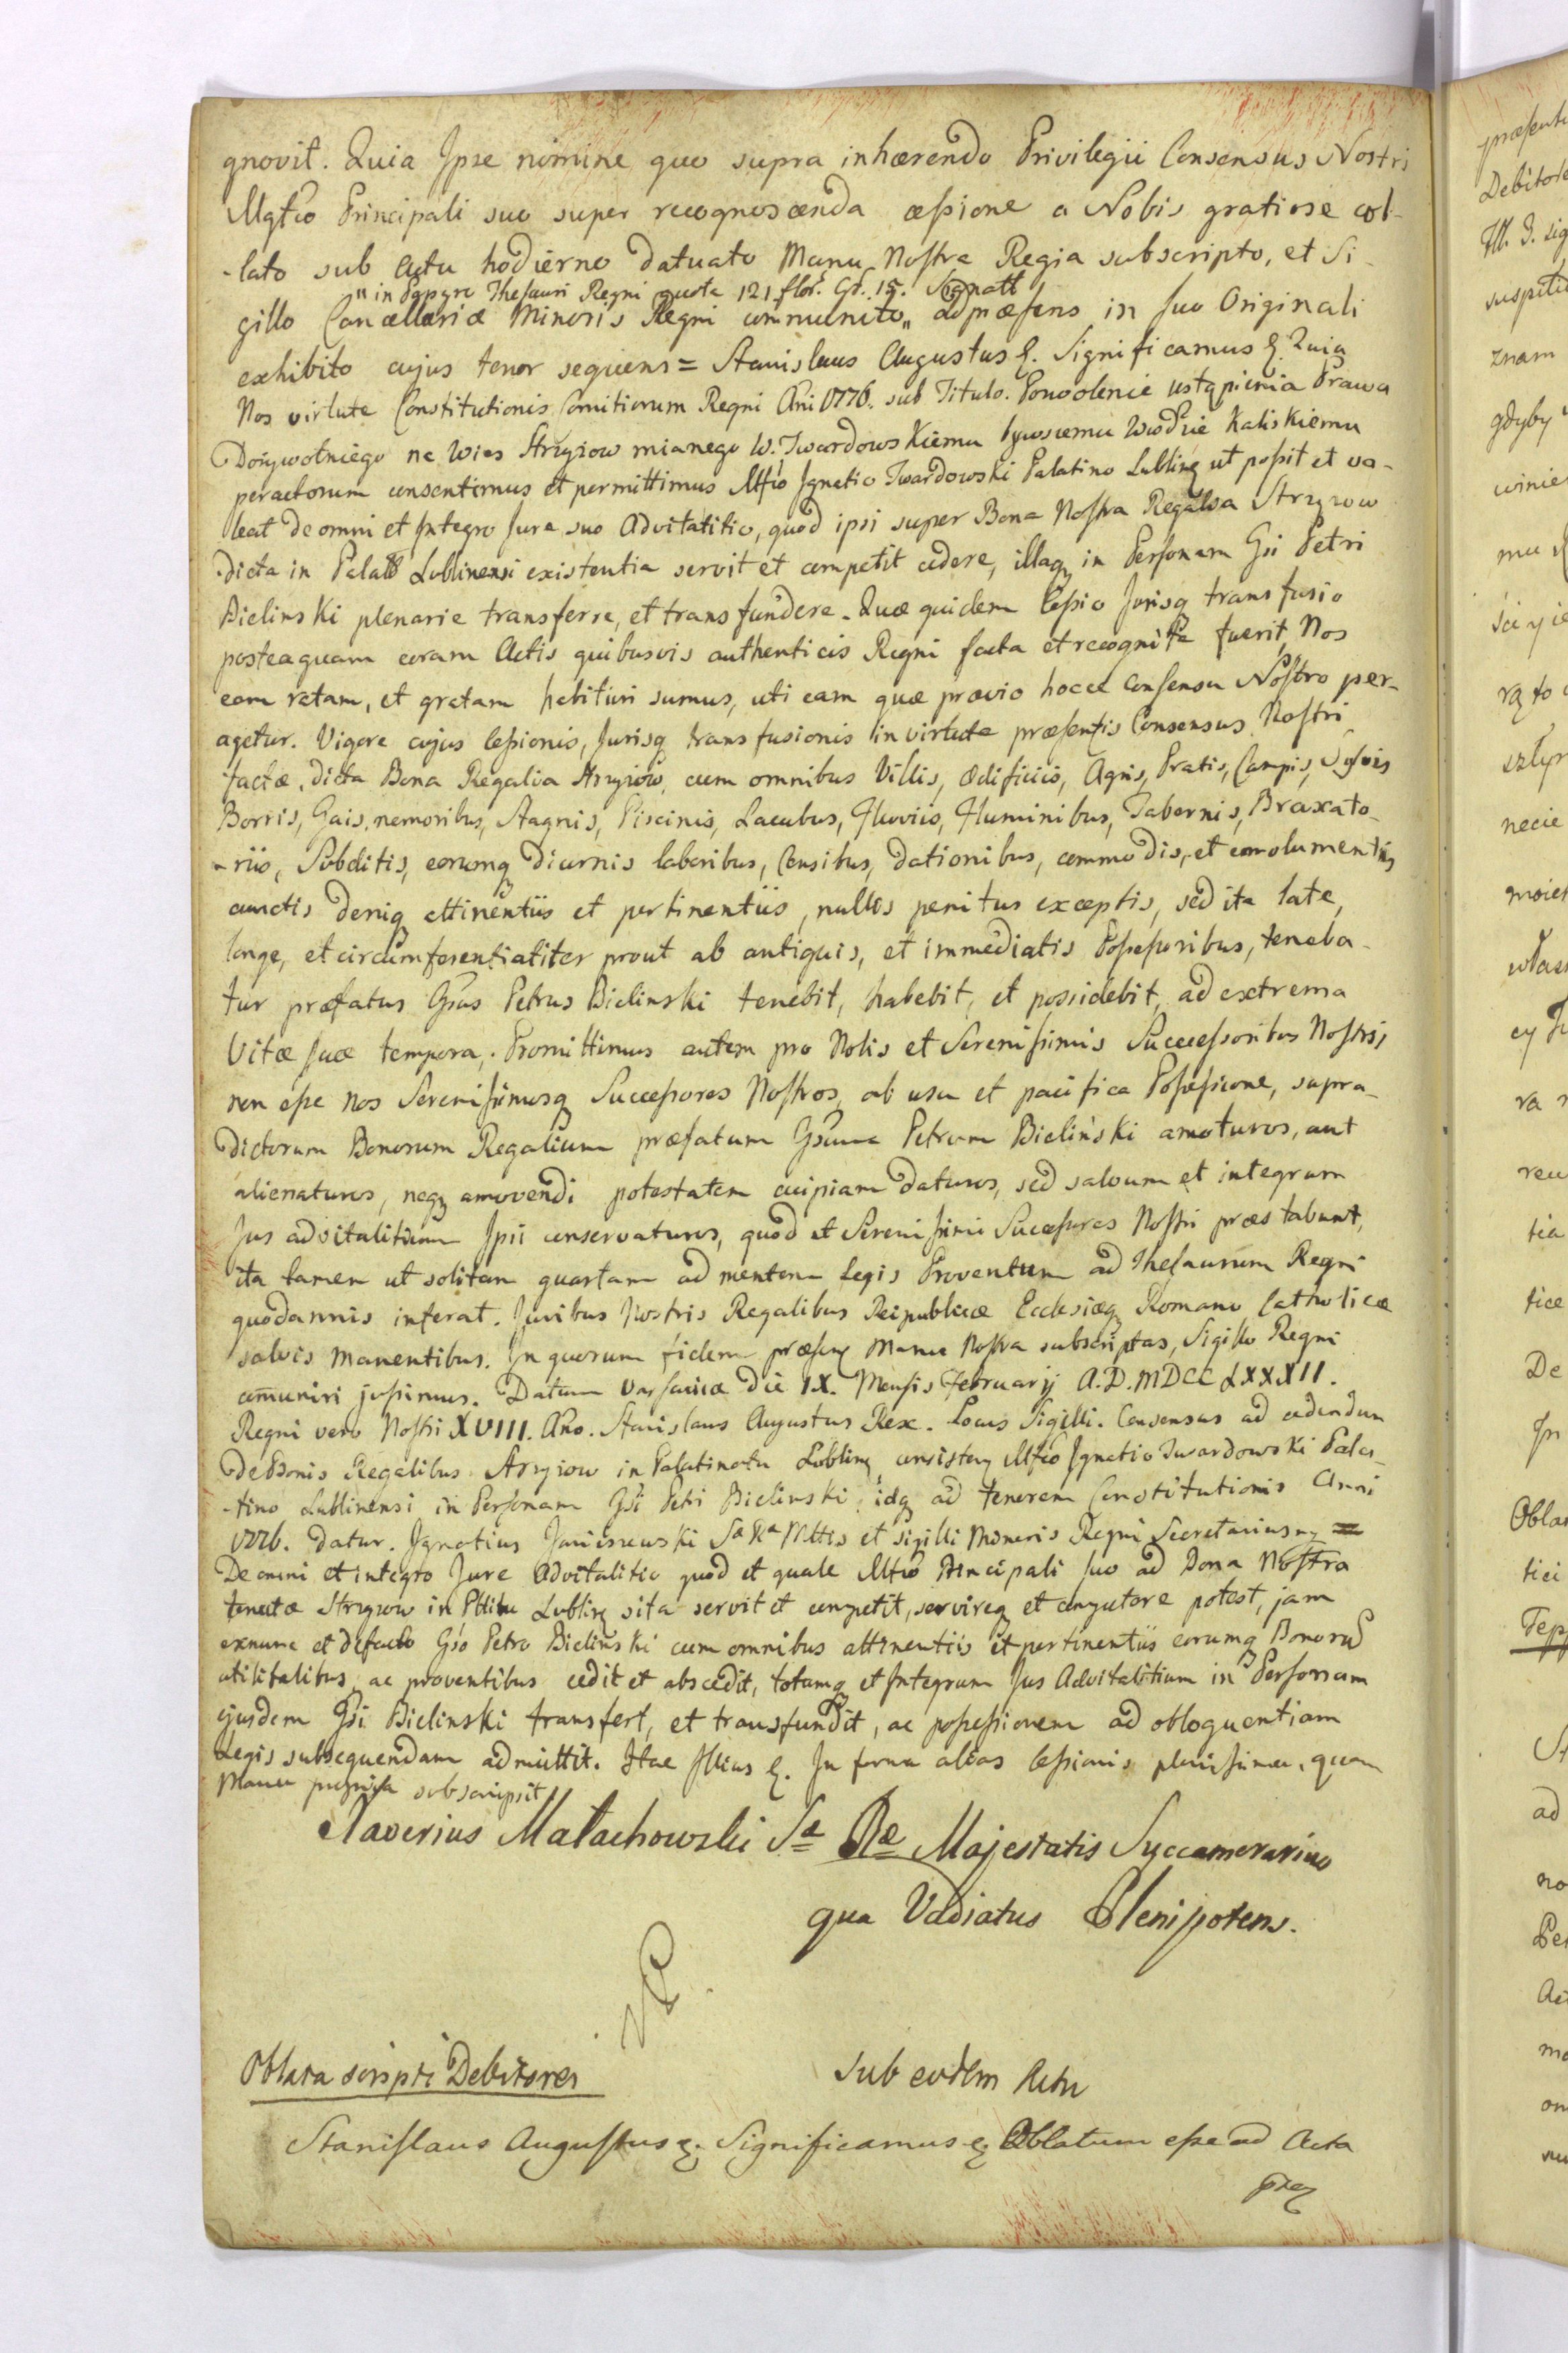 gnovit. Quia Ipse nomine quo supra inhærendo Privilegii Consensus Nostri
Mgfco Principali suo super recognoscenda cessione a Nobis gratiose col-
-lato sub Actu hodierno datuato Manu Nostra Regia subscripto, et Si-
"in Papyro Thesauri Regni quota 121 flor. Gr. 15. Signatt
gillo Cancellariæ Minoris Regni communito„ ad præsens in suo Originali
exhibito cujus tenor sequens = Stanislaus Augustus &. Significamus &. Quia
Nos virtute Constitutionis Comitiorum Regni Ani 1776. sub Titulo. Pozwolenie ustąpienia Prawa
Dożywotniego na Wies Strzyzow mianego W. Twardowskiemu bywszemu Wwodzie Kaliskiemu
peractorum consentimus et permittimus Mfco Ignatio Twardowski Palatino Lubling ut possit et va-
leat de omni et Integro Jure suo Advitalitio, quod ipsi super Bona Nostra Regalia Strzyzow
dicta in Palatt Lublinensi existentia servit et competit cedere, illaq in Personam Gsi Petri
Bielinski plenarie transferre, et transfundere. Quæ quidem Cessio Jurisq transfusio
posteaquam coram Actis quibusvis authenticis Regni facta et recognita fuerit, Nos
eam ratam, et gratam habituri sumus, uti eam quæ prævio hocce Consensu Nostro per-
agetur. Vigore cujus Cessionis, Jurisq transfusionis in virtute præsentis Consensus Nostri
factæ, dicta Bona Regalia Strzyzow, cum omnibus Villis, ædificiis, Agris, Pratis, Campis, Sylvis
Borris, Gais, nemoribus, Stagnis, Piscinis, Lacubus, Fluviis, Fluminibus, Tabernis, Braxato-
-riis, Subditis, eorumq diurnis laboribus, Censibus, dationibus, commodis, et emolumentis
cunctis deniq attinentiis et pertinentiis, nullis penitus exceptis, sed ita late,
longe, et circumferentialiter prout ab antiquis, et immediatis Possessoribus, teneba-
tur præfatus Gsus Petrus Bielinski tenebit, habebit, et possidebit, ad extrema
Vitæ suæ tempora,. Promittimus autem pro Nobis et Serenissimis Successoribus Nostris,
non esse Nos Serenissimosq Successores Nostros, ab usu et pacifica Possessione, supra-
dictorum Bonorum Regalium præfatum Gsum Petrum Bieliński amoturos, aut
alienaturos, neq amovendi potestatem cuipiam daturos, sed salvum et integrum
Jus advitalitium Ipsi conservaturos, quod et Serenissimi Successores Nostri præstabunt,
ita tamen ut solitam quartam ad mentem Legis Proventum ad Thesaurum Regni
quodannis inferat. Juribus Nostris Regalibus Reipublicæ Ecclesiæq Romano Catholicæ
salvis manentibus. In quorum fidem præseng Manu Nostra subscriptas, Sigillo Regni
comuniri jussimus. Datum Varsaviæ die IX. Mensis Februarij A.D. MDCCLXXXII.
Regni vero Nostri XVIII. Ano. Stanislaus Augustus Rex. Locus Sigilli. Consensus ad cedendum
de Bonis Regalibus Strzyzow in Palatinatu Lubling consisteng Mfco Ignatio Twardowski Pala-
-tino Lublinensi in Personam Gsi Petri Bielinski, idq ad tenorem Constitutionis Anni
1776. datur. Ignatius Janiszewski Sæ Ræ Mttis et sigilli Minoris Regni Secretarius =
De omni et integro Jure Advitalitio quod et quale Mfco Principali suo ad Bona Nostra
tenutæ Strzyzow in Pttitu Lubling sita servit et competit, servireq et competere potest, jam
exnunc et defacto Gso Petro Bieliński cum omnibus attinentiis et pertinentiis eorumq Bonorum
utilitatibus, ac proventibus cedit et abscedit, totumq et Integrum Jus Advitalitium in Personam
ejusdem Gsi Bielinski transfert, et transfundit, ac possessionem ad obloquentiam
Legis subsequendam admittit. Itae Illius &. In forma alias Cessionis plenissima, quam
Manu propria subscripsit.
Xaverius Małachowski Sæ Ræ Majestatis Succamerarius
qua Vadiatus Plenipotens.
Oblata scripti Debitorei
Sub eodem Actu
Stanislaus Augustus &. Significamus & Oblatum esse ad Acta